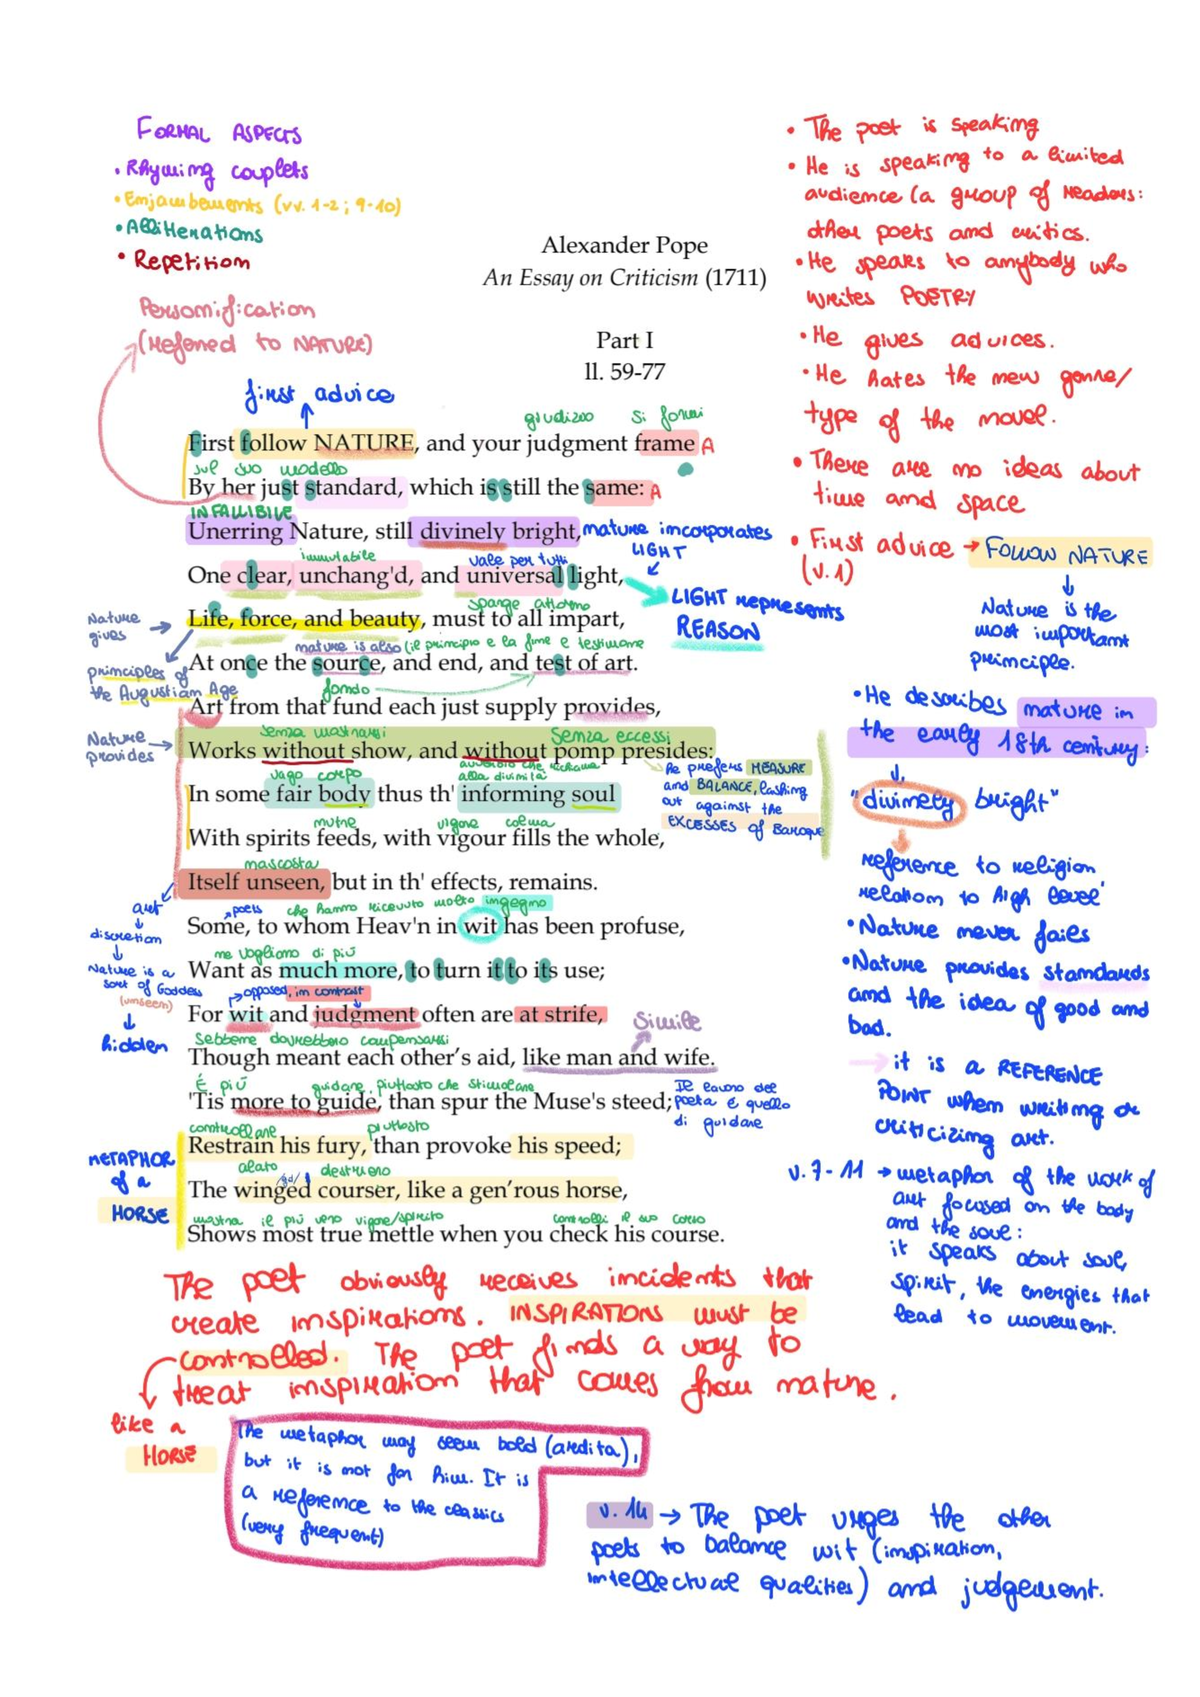 FORMAL ASPECTS
• Rhyming couplets
• Enjambements (vv. 1-2; 9-10)
• Alliterations
• Repetition
Personification
(referred to NATURE)
Alexander Pope
An Essay on Criticism (1711)
Part I
ll. 59-77
• The poet is speaking
• He is speaking to a limited
audience (a group of readers:
other poets and critics.
• He speaks to anybody who
writes POETRY
• He gives advices.
• He hates the new genre/
type of the novel.
• There are no ideas about
time and space
• First advice → FOLLOW NATURE
(v.1)
Nature is the
most important
principle.
• He describes nature in
the early 18th century:
"divinely bright"
reference to religion
relation to high level
• Nature never fails
• Nature provides standards
and the idea of good and
bad.
→ it is a REFERENCE
POINT when writing or
criticizing art.
v. 7-11 → metaphor of the work of
art focused on the body
and the soul:
it speaks about soul,
spirit, the energies that
lead to movement.
first advice
giudizio si formi
First follow NATURE, and your judgment frame A
sul suo modello
By her just standard, which is still the same: A
INFALLIBILE
Unerring Nature, still divinely bright, nature incorporates
LIGHT
immutabile vale per tutti
One clear, unchang'd, and universal light,
LIGHT represents
REASON
Nature
gives
spange attorno
Life, force, and beauty, must to all impart,
nature is also (il principio e la fine e testimone
principles of
the Augustian Age
At once the source, and end, and test of art.
fondo
Art from that fund each just supply provides,
Nature
provides
senza mostrarsi senza eccessi
Works without show, and without pomp presides:
he prefers MEASURE
and BALANCE, lashing
out against the
EXCESSES of Baroque
vago corpo
alla divinità
In some fair body thus th' informing soul
nutre vigore colma
With spirits feeds, with vigour fills the whole,
mascosta
Itself unseen, but in th' effects, remains.
art
discretion
Nature is a
sort of Goddess
(unseen)
hidden
poets che hanno ricevuto molto ingegno
Some, to whom Heav'n in wit has been profuse,
ne vogliono di più
Want as much more, to turn it to its use;
opposed, in contrast
For wit and judgment often are at strife,
Simile
Sebbene dovrebbero compensarsi
Though meant each other's aid, like man and wife.
È più guidare, piuttosto che stimolare
'Tis more to guide, than spur the Muse's steed;
Il lavoro del
poeta è quello
di guidare
controllare piuttosto
Restrain his fury, than provoke his speed;
METAPHOR
of a
HORSE
alato destriero
The winged courser, like a gen'rous horse,
mostra il più vero vigore/spirito controlli il suo corso
Shows most true mettle when you check his course.
The poet obviously receives incidents that
create inspirations. INSPIRATIONS must be
controlled. The poet finds a way to
treat inspiration that comes from nature.
like a
HORSE
The metaphor may seem bold (ardita),
but it is not for him. It is
a reference to the classics
(very frequent)
v. 14 → The poet urges the other
poets to balance wit (inspiration,
intellectual qualities) and judgement.